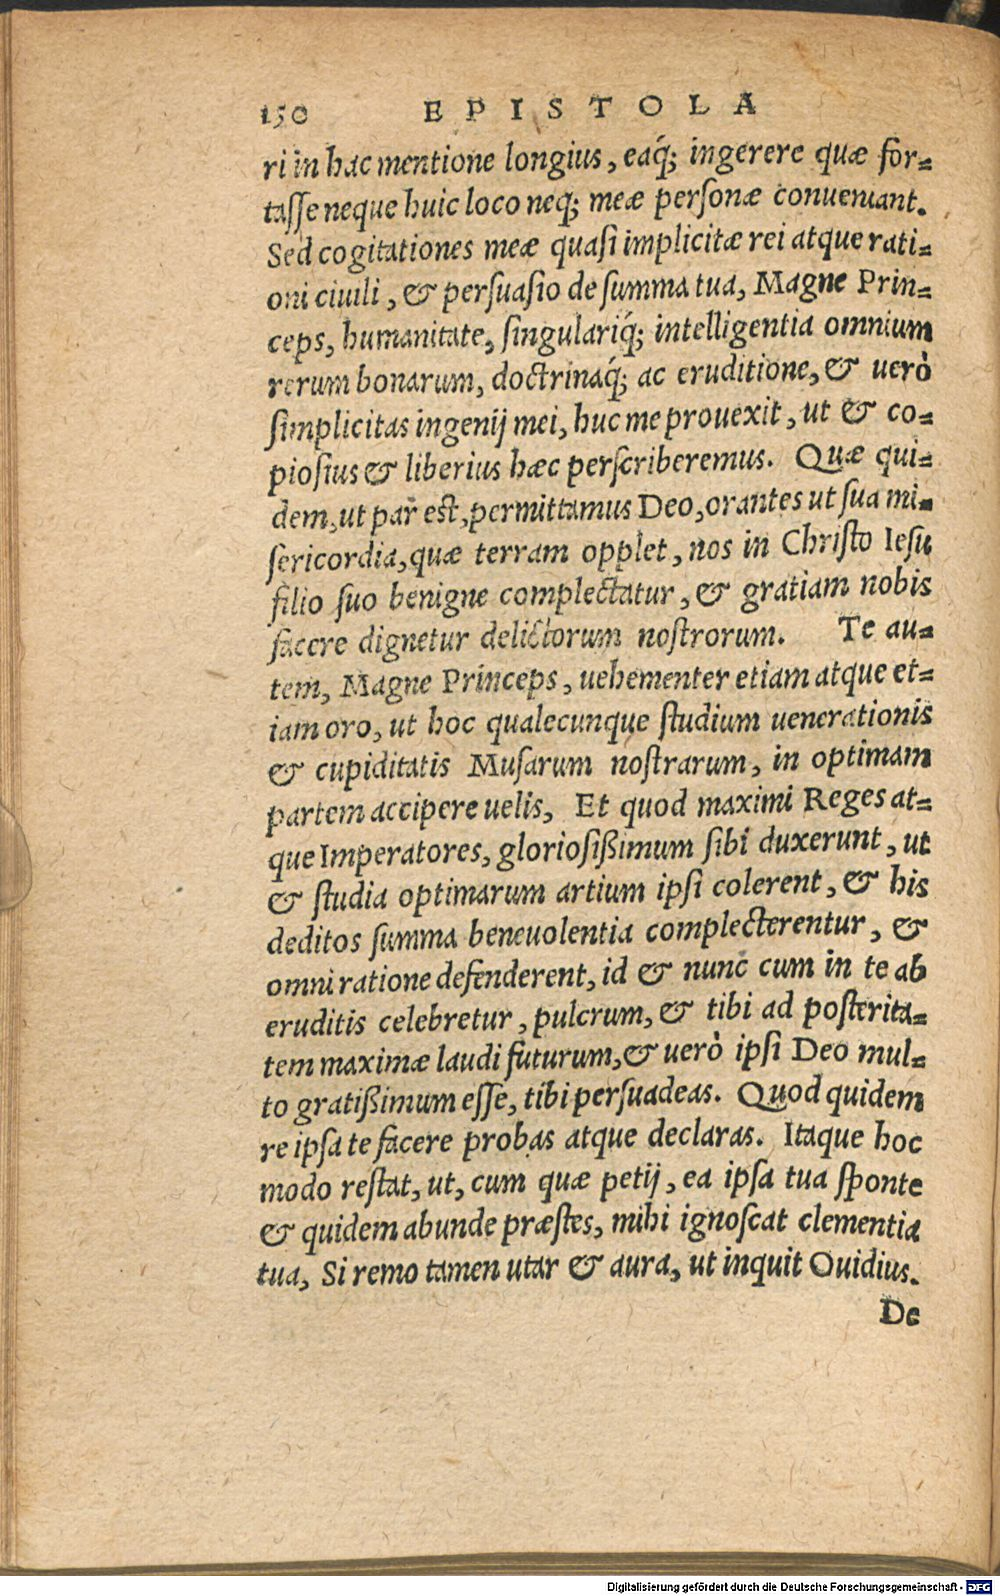 150 EPISTOLA
ri in hac mentione longius, eaq́; ingerere quæ for-
tasse neque huic loco neq; meæ personæ conueniant.
Sed cogitationes meæ quasi implicitæ rei atque rati-
oni ciuili, & persuasio de summa tua, Magne Prin-
ceps, humanitate, singulariq́; intelligentia omnium
rerum bonarum, doctrinaq́; ac eruditione, & uerò
simplicitas ingenij mei, huc me prouexit, ut & co-
piosius & liberius hæc perscriberemus. Quæ qui-
dem, ut par est, permittamus Deo, orantes ut sua mi-
sericordia, quæ terram opplet, nos in Christo Iesu
filio suo benigne complectatur, & gratiam nobis
facere dignetur delictorum nostrorum. Te au-
tem, Magne Princeps, uehementer etiam atque et-
iam oro, ut hoc qualecunque studium uenerationis
& cupiditatis Musarum nostrarum, in optimam
partem accipere uelis, Et quod maximi Reges at-
que Imperatores, gloriosißimum sibi duxerunt, ut
& studia optimarum artium ipsi colerent, & his
deditos summa beneuolentia complecterentur, &
omni ratione defenderent, id & nunc cum in te ab
eruditis celebretur, pulcrum, & tibi ad posterita-
tem maximæ laudi futurum, & uerò ipsi Deo mul-
to gratißimum esse, tibi persuadeas. Quod quidem
re ipsa te facere probas atque declaras. Itaque hoc
modo restat, ut, cum quæ petij, ea ipsa tua sponte
& quidem abunde præstes, mihi ignoscat clementia
tua, Si remo tamen utar & aura, ut inquit Ouidius.
De
Digitalisierung gefördert durch die Deutsche Forschungsgemeinschaft - DFG